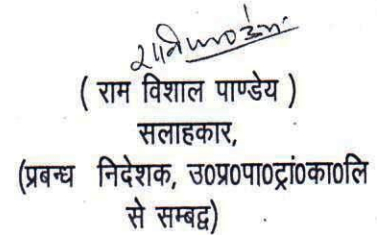 ( राम विशाल पाण्डेय )
सलाहकार,
(प्रबन्ध निदेशक, उ०प्र०पा०ट्रां०का०लि
से सम्बद्व)